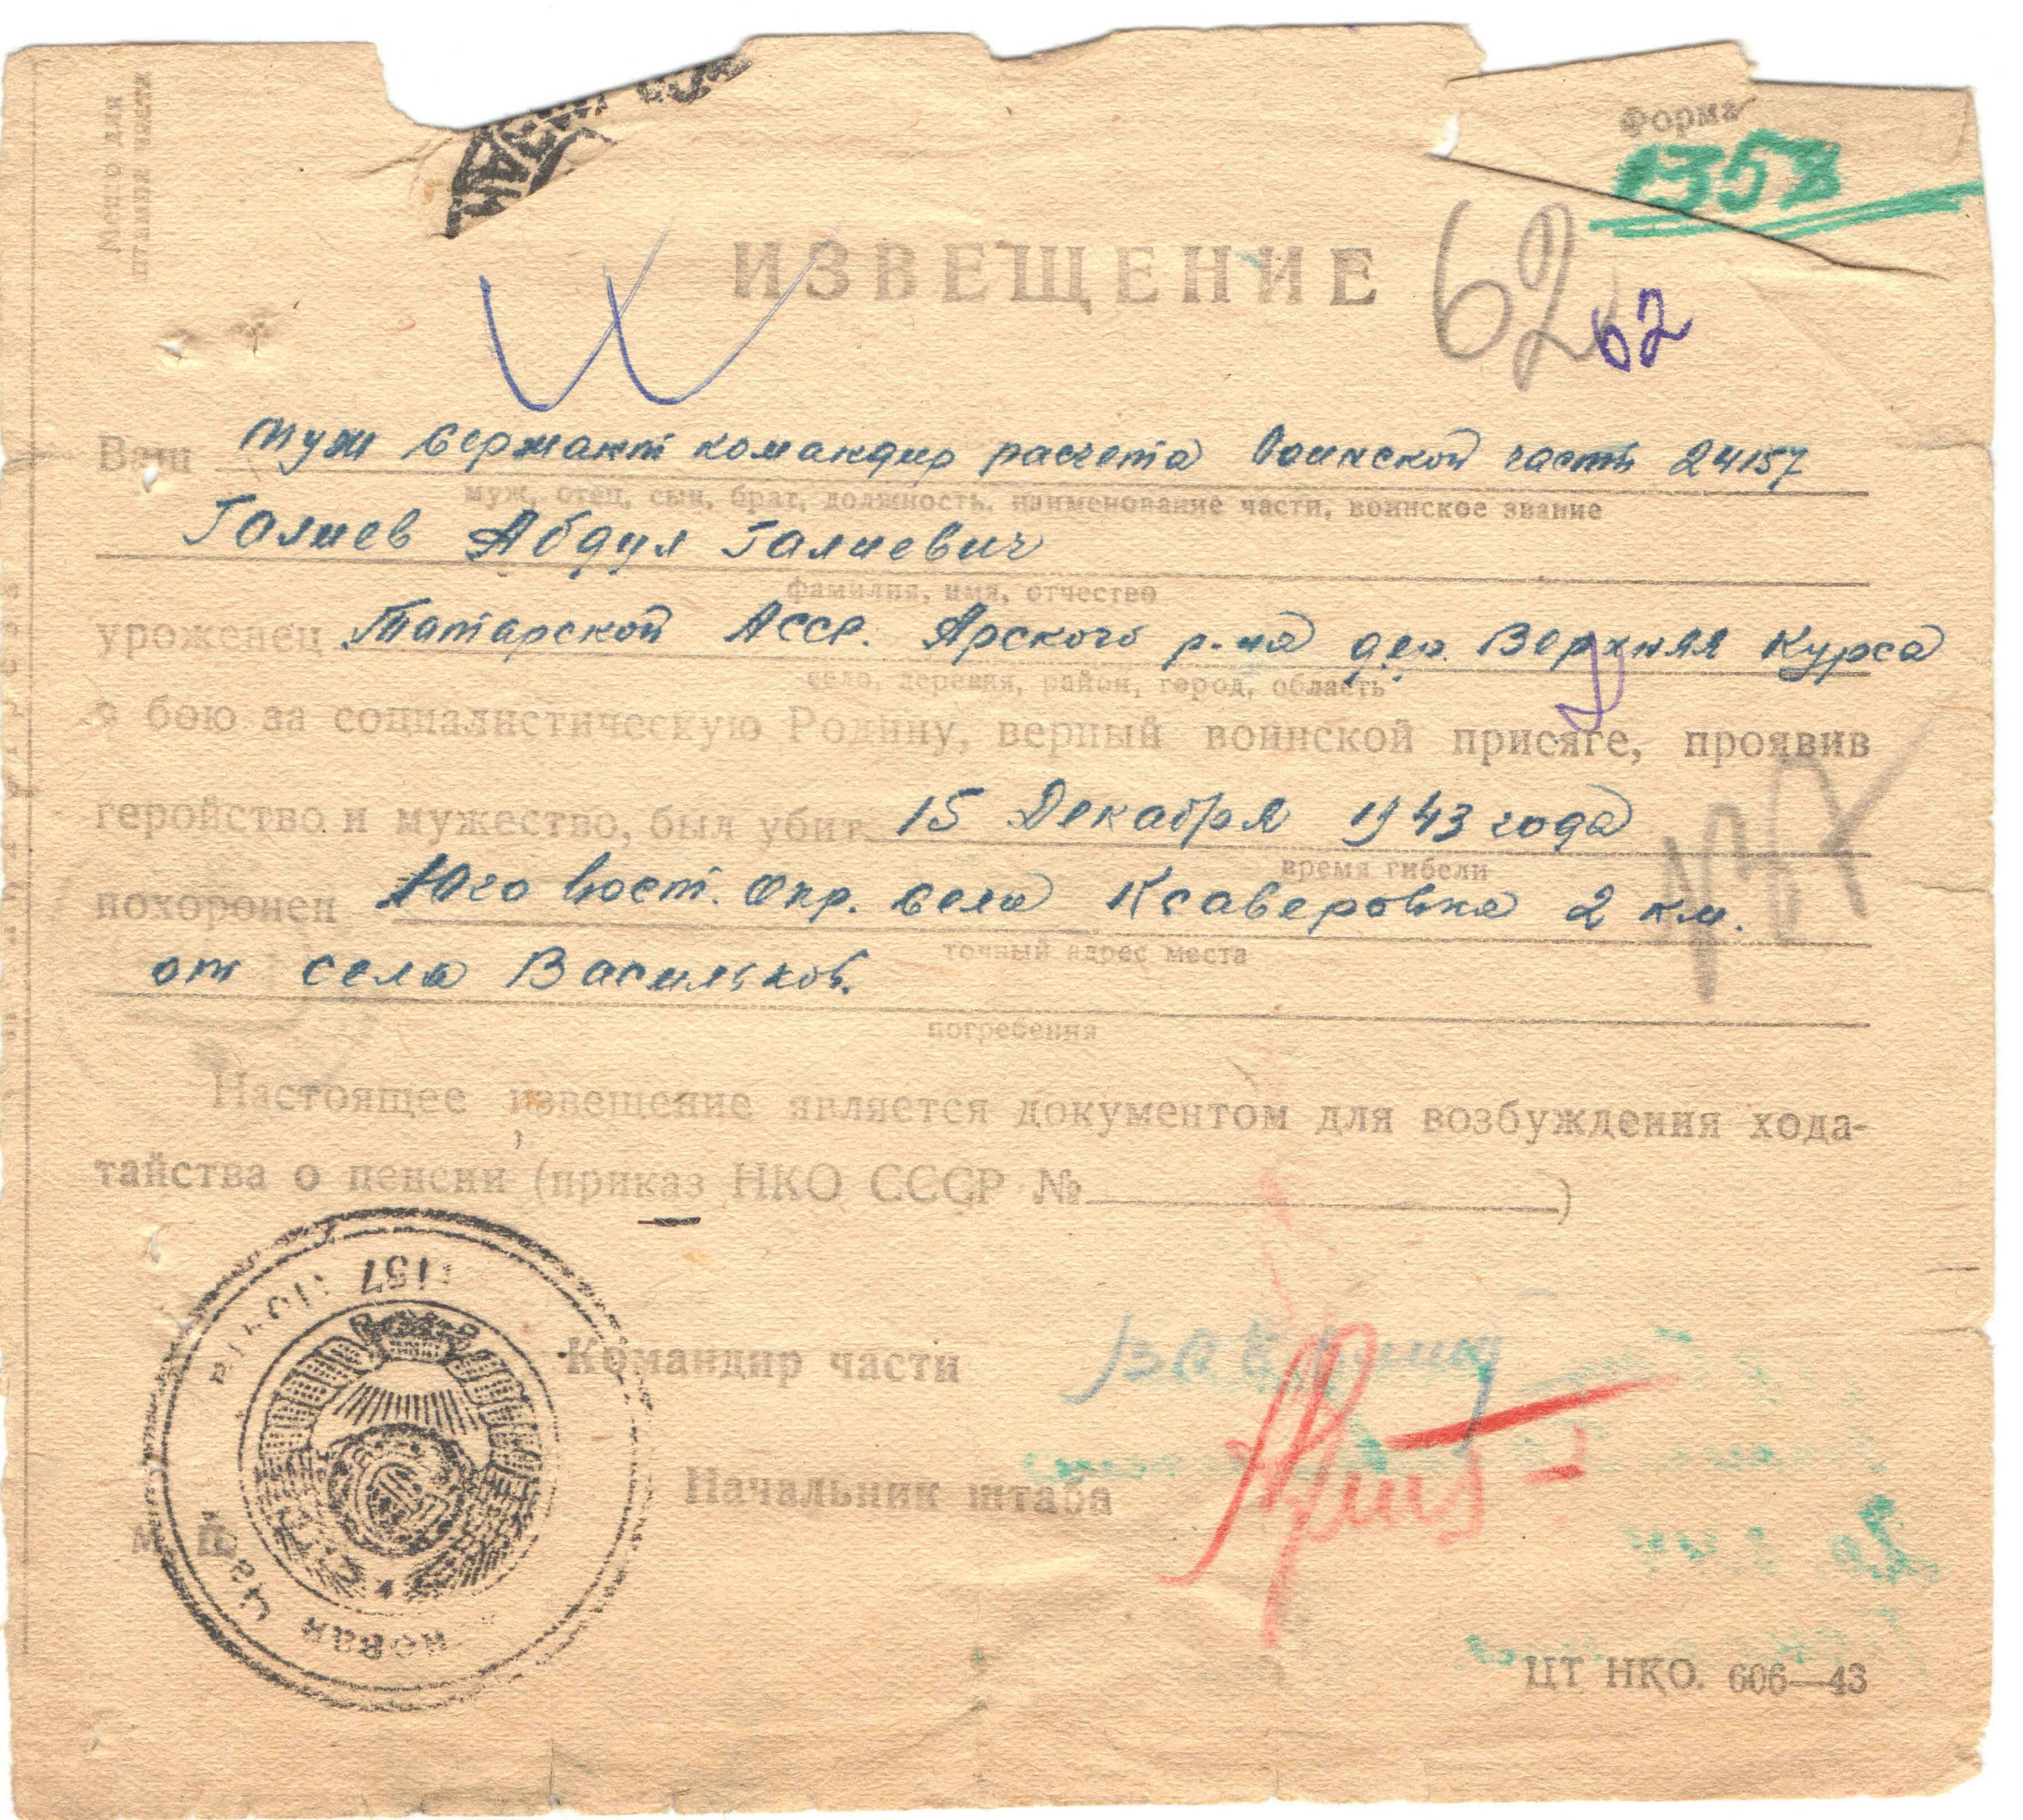 Место для
штампа части
Форма
1358
ИЗВЕЩЕНИЕ
62 62
Ваш муж сержант командир расчета Воинской часть 24157
муж, отец, сын, брат, должность, наименование части, воинское звание
Галиев Абдул Галиевич
фамилия, имя, отчество
уроженец Татарской АССР. Арского р-на дер. Верхняя Курса
село, деревня, район, город, область
в бою за социалистическую Родину, верный воинской присяге, проявив
геройство и мужество, был убит 15 Декабря 1943 года
время гибели
похоронен Юго Вост. Окр. села Ксаверовка 2 км.
точный адрес места
от села Васильков.
погребения
Настоящее извещение является документом для возбуждения хода-
тайства о пенсии (приказ НКО СССР № )
157
Командир части
Начальник штаба
М. П.
ЦТ НКО. 606—43